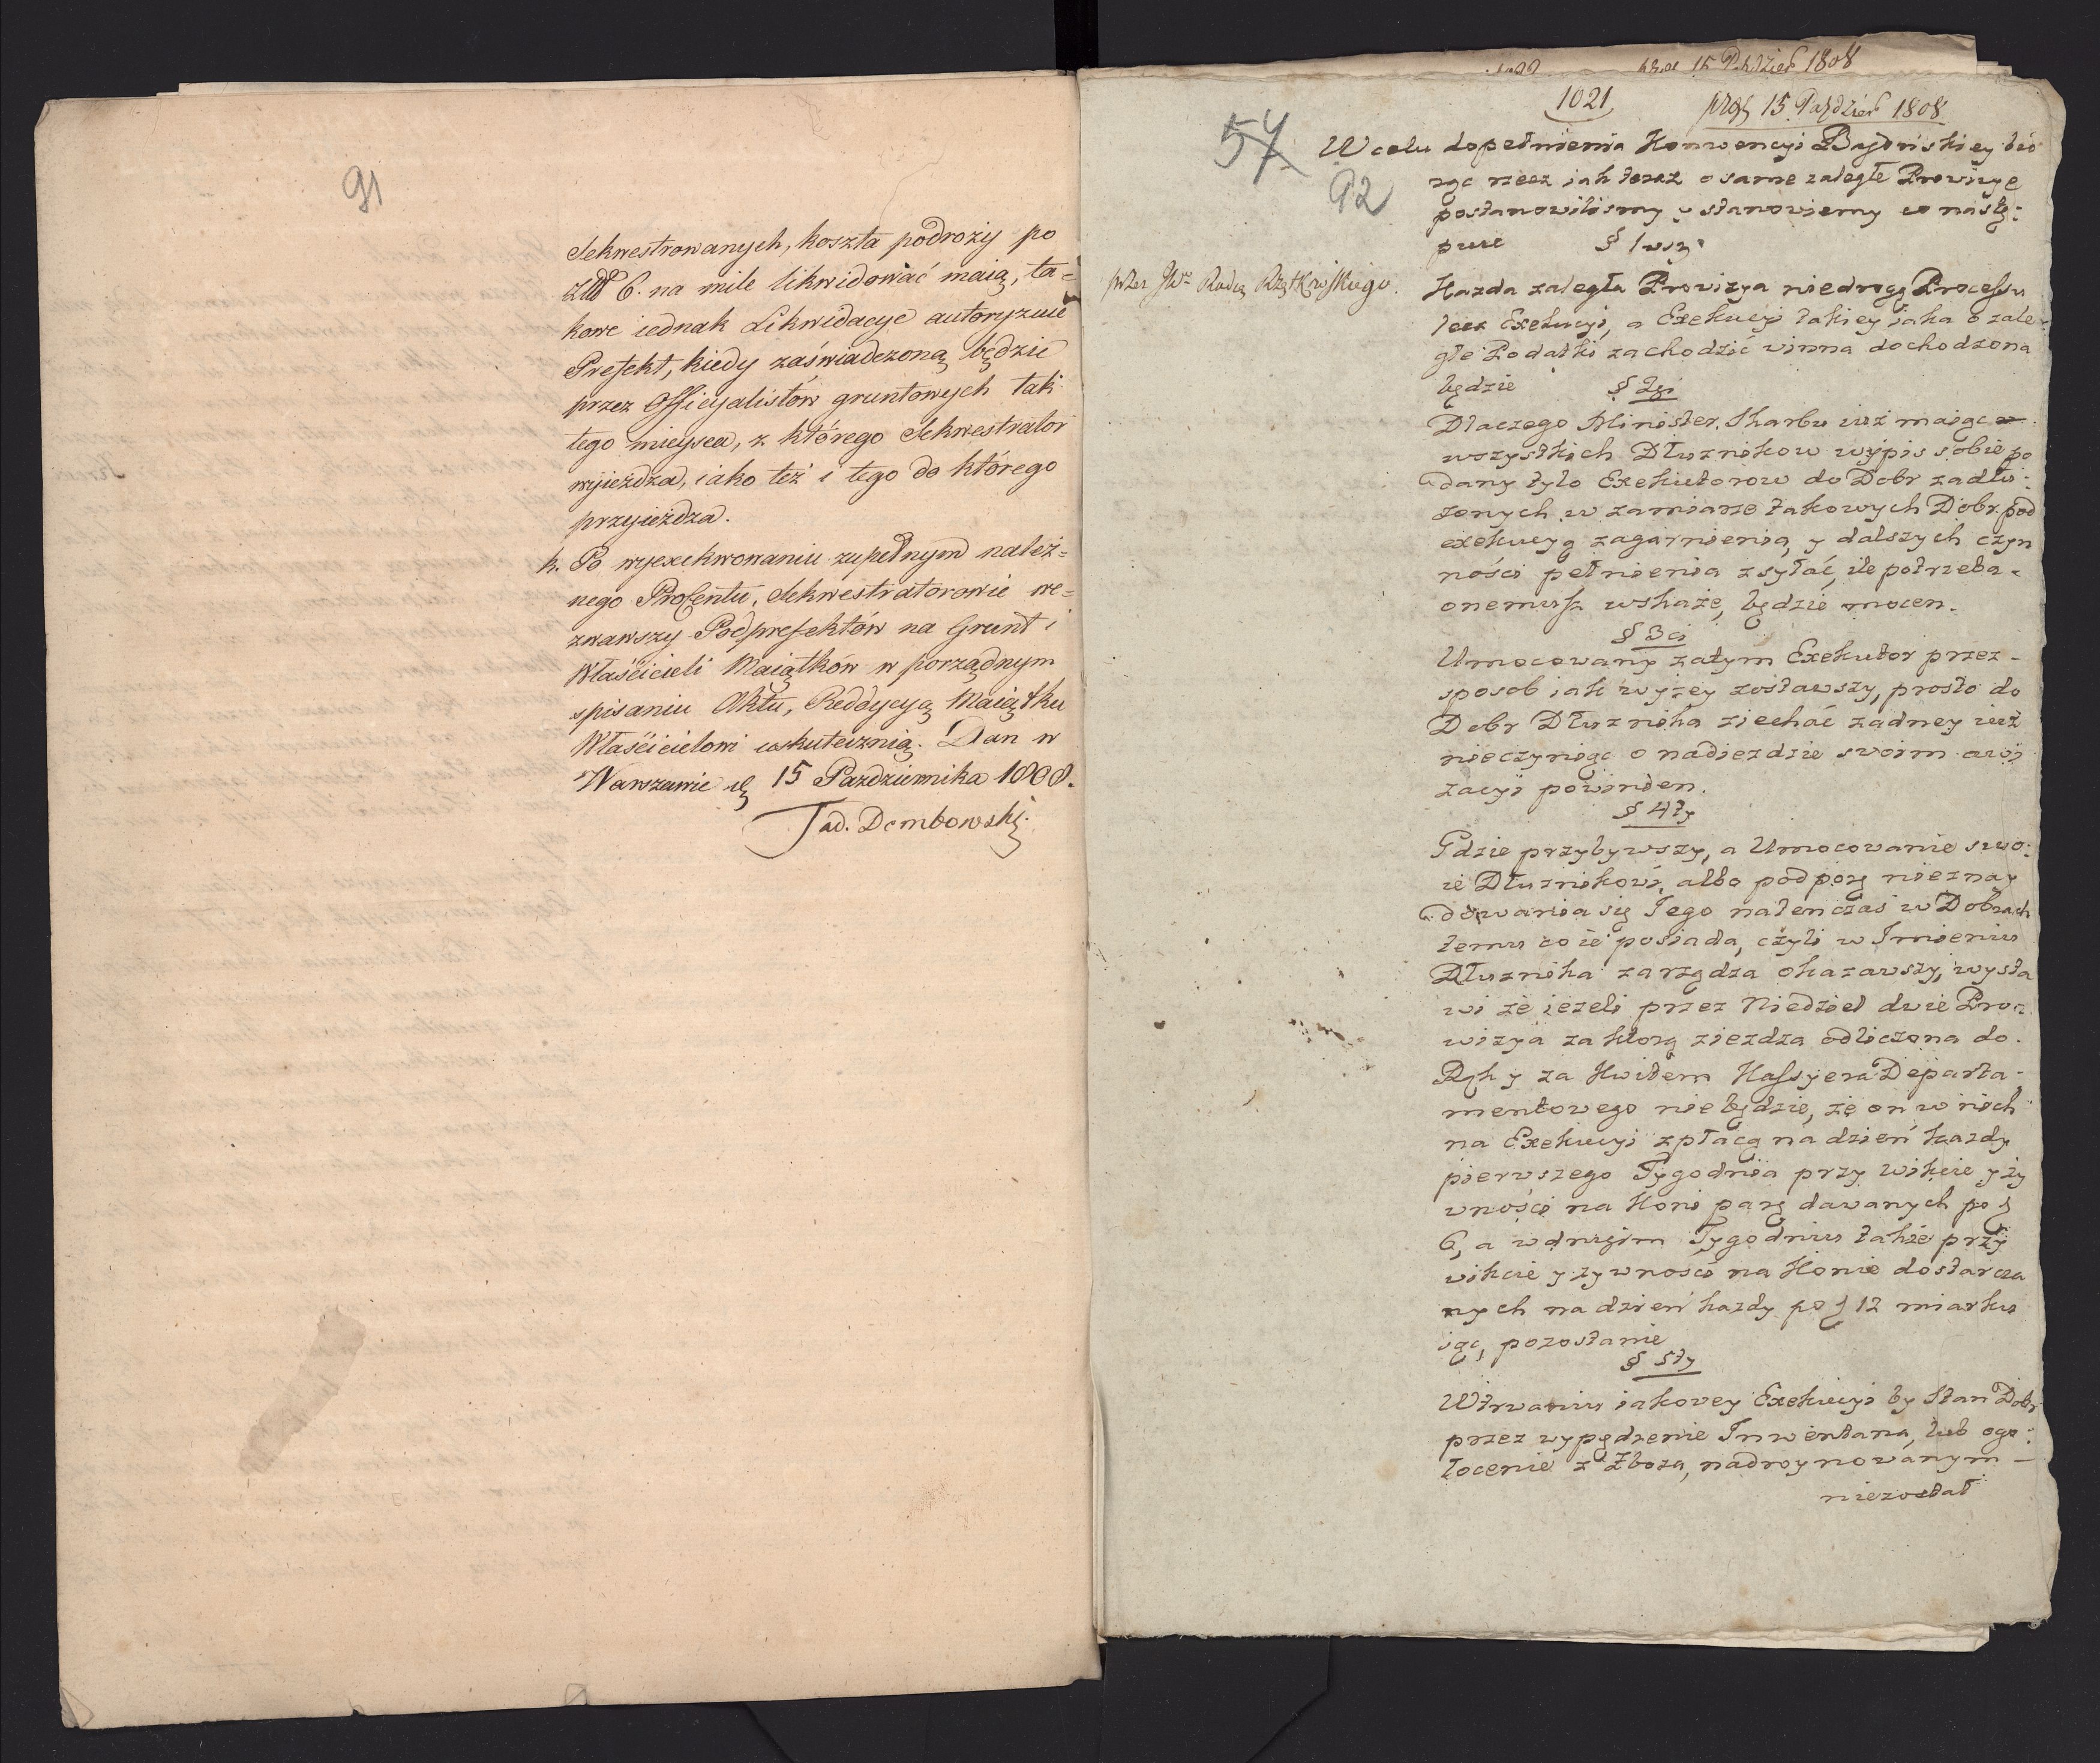 91
Sekwestrowanych, koszta podroży po
6. na mile likwidować maią, ta=
kowe iednak Likwidacye autoryzuie
Prefekt, kiedy zaświadczoną będzie
przez Officyalistów gruntowych tak
tego mieysca, z którego Sekwestrator
wyieżdza, iako też i tego do którego
przyieżdza.
k. Po wyexekwowaniu zupełnym należ=
nego Procentu, Sekwestratorowie we=
zwawszy Podprefektów na Grunt i
Właścicieli Maiątków w porządnym
spisaniu Aktu, Reddycyą Maiątku
Właścicielowi uskutecznią. Dan w
Warszawie d. 15 Pazdziernika 1808.
Tad. Dembowski.
15 Paździer 1808
1021
15 Paździer 1808
57
92
W celu dopełnienia Konwencyi Bajońskiey bió
rąc rzecz iak teraz o same zaległe Prowizye
postanowiliśmy y stanowiemy co nastę:
puie § 1wszy
przez JWo Radcę Rzątkowskiego.
Kazda zaległa Prowizya niedrogą Processu
lecz Exekucyi, a Exekucyi takiey iaka o zale
głe Podatki zachodzić winna dochodzona
będzie § 2gi
Dlaczego Minister Skarbu iuż maiąc
wszystkich Dłuznikow wypis sobie po
dany tylo Exekutorow do Dobr zadłu:
zonych w zamiarze takowych Dobr pod
exekucyą zagarnienia, y dalszych czyn
ności pełnienia zsyłać, ile potrzeba
onemusz wskaże, będzie mocen.
§ 3ci
Umocowany zatym Exekutor przez
sposob iak wyżey zostawszy, prosto do
Dobr Dłuznika ziechać zadney iuż
nieczyniąc o nadiezdzie swoim awi
zacyi powinien.
§ 4ty
Gdzie przybywszy, a Umocowanie swo:
ie Dłuznikowi, albo podporę nieznay
dowania się Tego natenczas w Dobrach
temu co ie posiada, czyli w Imieniu
Dłuznika zarządza okazawszy, wysta
wi że iezeli przez Niedziel dwie Pro
wizya za ktorą ziezdza odliczona do
Ręk y za Kwitem Kassyera Departa-
mentowego nie będzie, że on w nich
na Exekucyi z płacą na dzień kazdy
pierwszego Tygodnia przy wikcie y ży
wności na Koni parę dawanych po zł
6, a w drugim Tygodniu także przy
wikcie y zywności na Konie dostarcza
nych na dzień kazdy po zł 12 miarku
iąc, pozostanie
§ 5ty
W trwaniu iakowey Exekucyi by Stan Dobr
przez wypędzenie Inwentarza, lub ogo:
łocenie z Zboza, nadroynowanym
niezostał